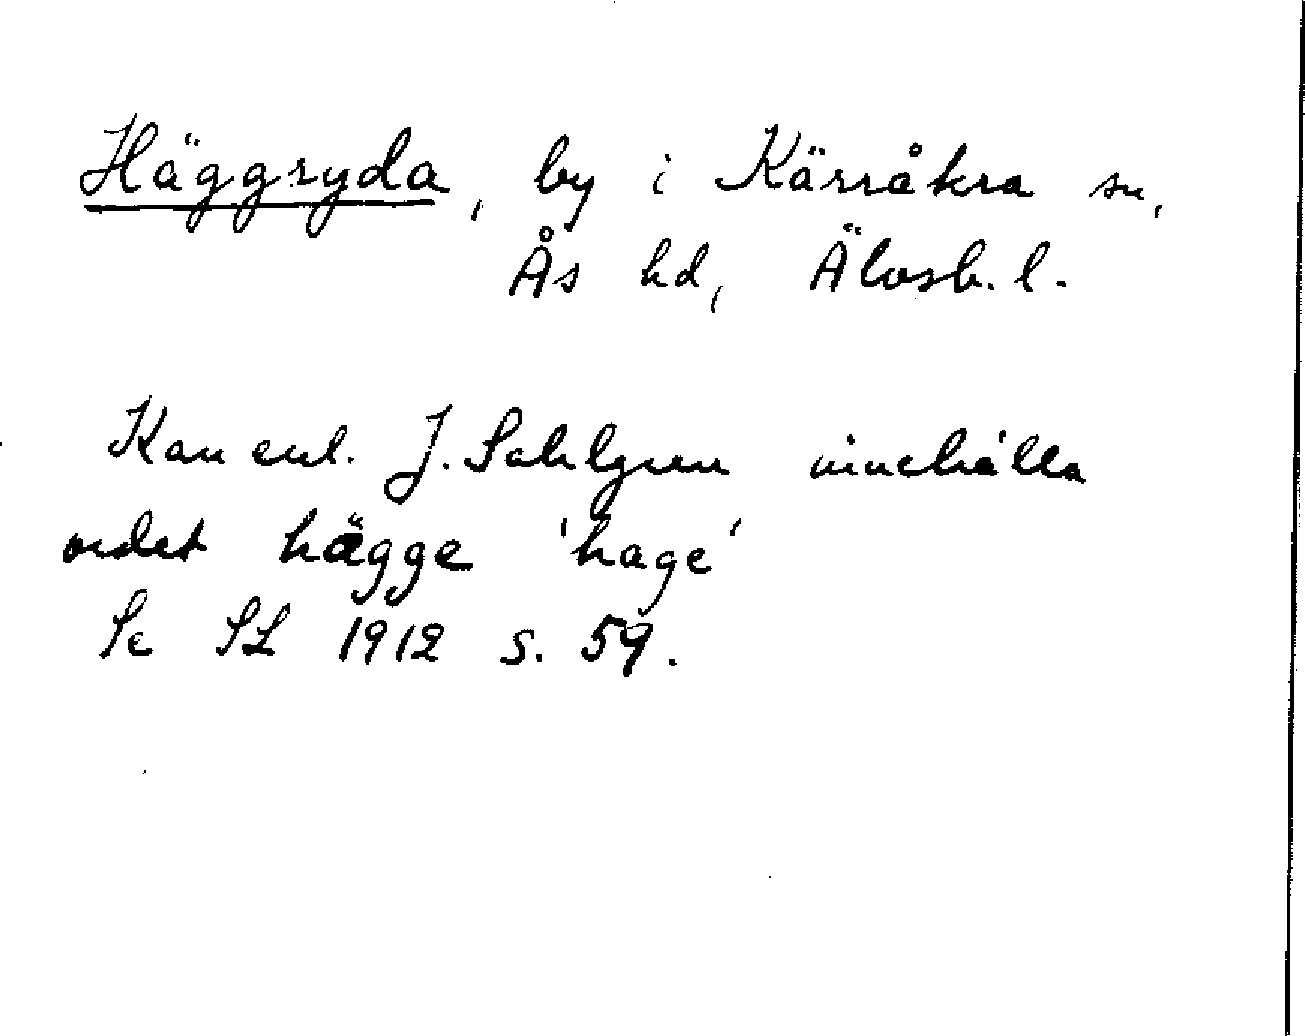 Häggryda, by i Kärråkra sn,
Ås hd, Älvsb. l.
Kan enl. J. Sahlgren innehålla
ordet hägge 'hage'
Se SL 1912 s. 59.